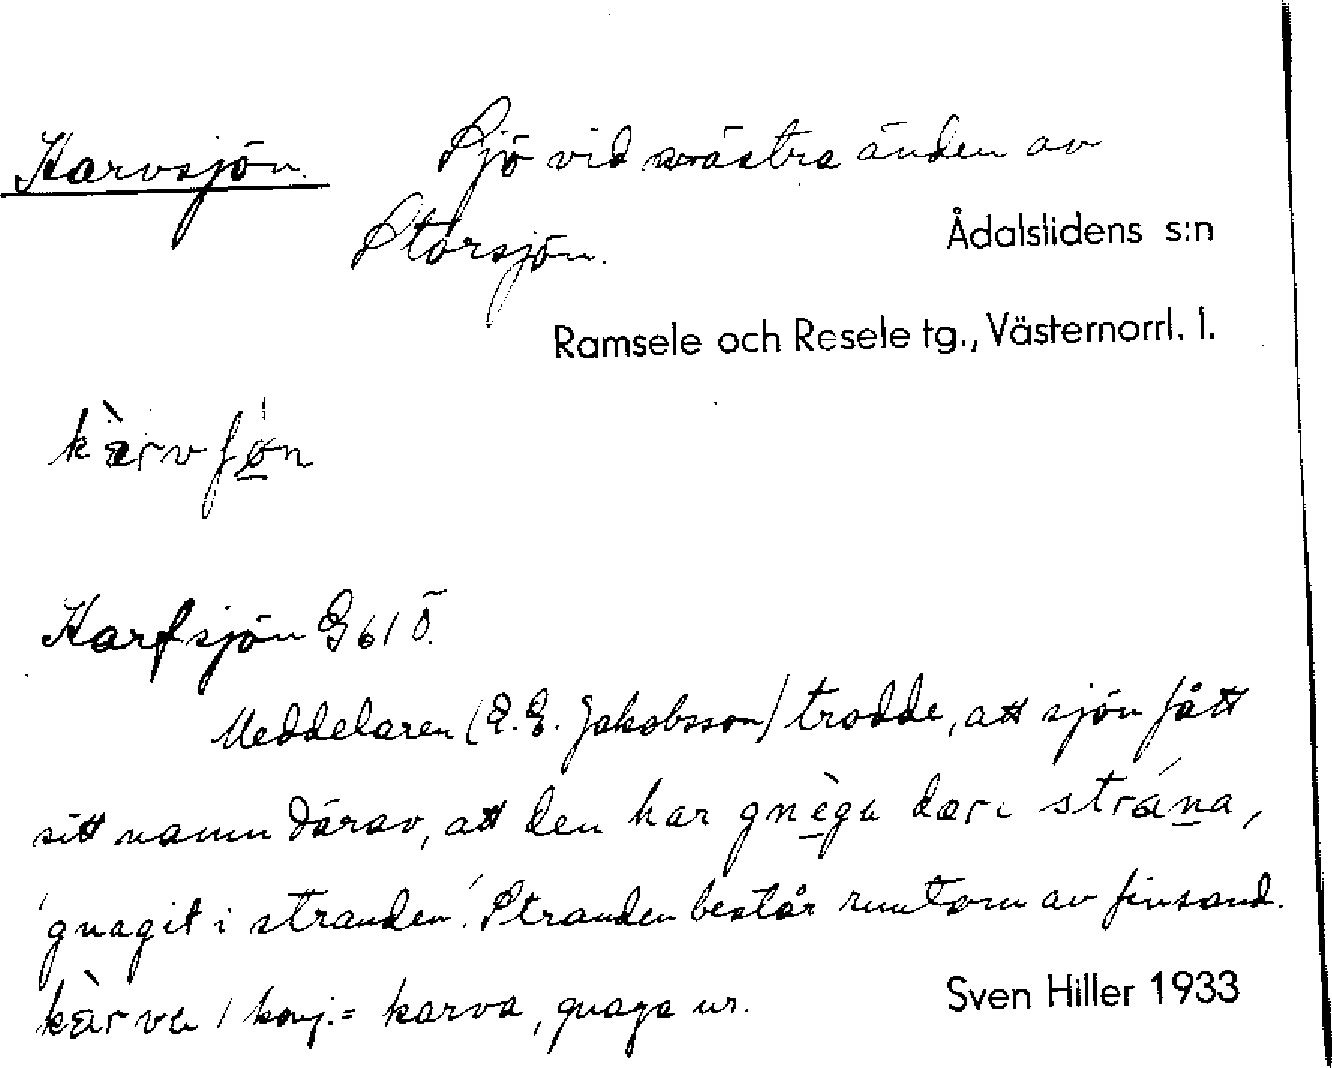 Karvsjön. Sjö vid västra änden av
Storsjön.
Ådalslidens s:n
Ramsele och Resele tg., Västernorrl. l.
kàrvʃøn
Karfsjön G61Ö.
Meddelaren (E.E. Jakobsson) trodde, att sjön fått
sitt namn därav, att den har gnèga dær i strána,
'gnagit i stranden'. Stranden består runtom av finsand.
kàrva 1 konj. = karva, gnaga ur.
Sven Hiller 1933